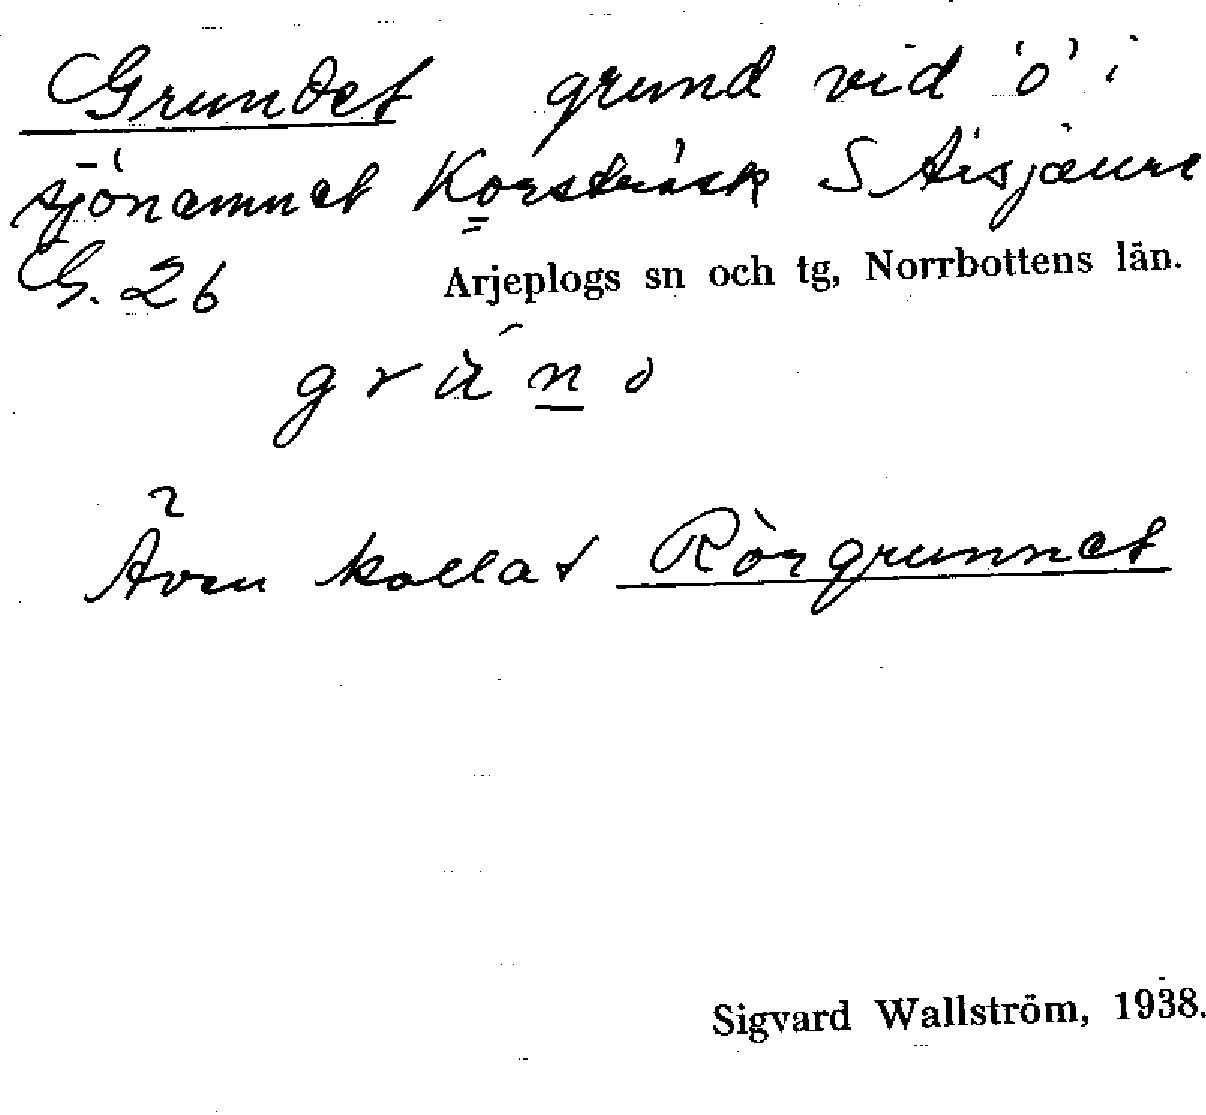 Grundet grund vid 'o' i
sjönamnet Korsträsk S Aisjaure
G. 26 Arjeplogs sn och tg, Norrbottens län.
Även kallat Rörgrunnet
Sigvard Wallström, 1938.